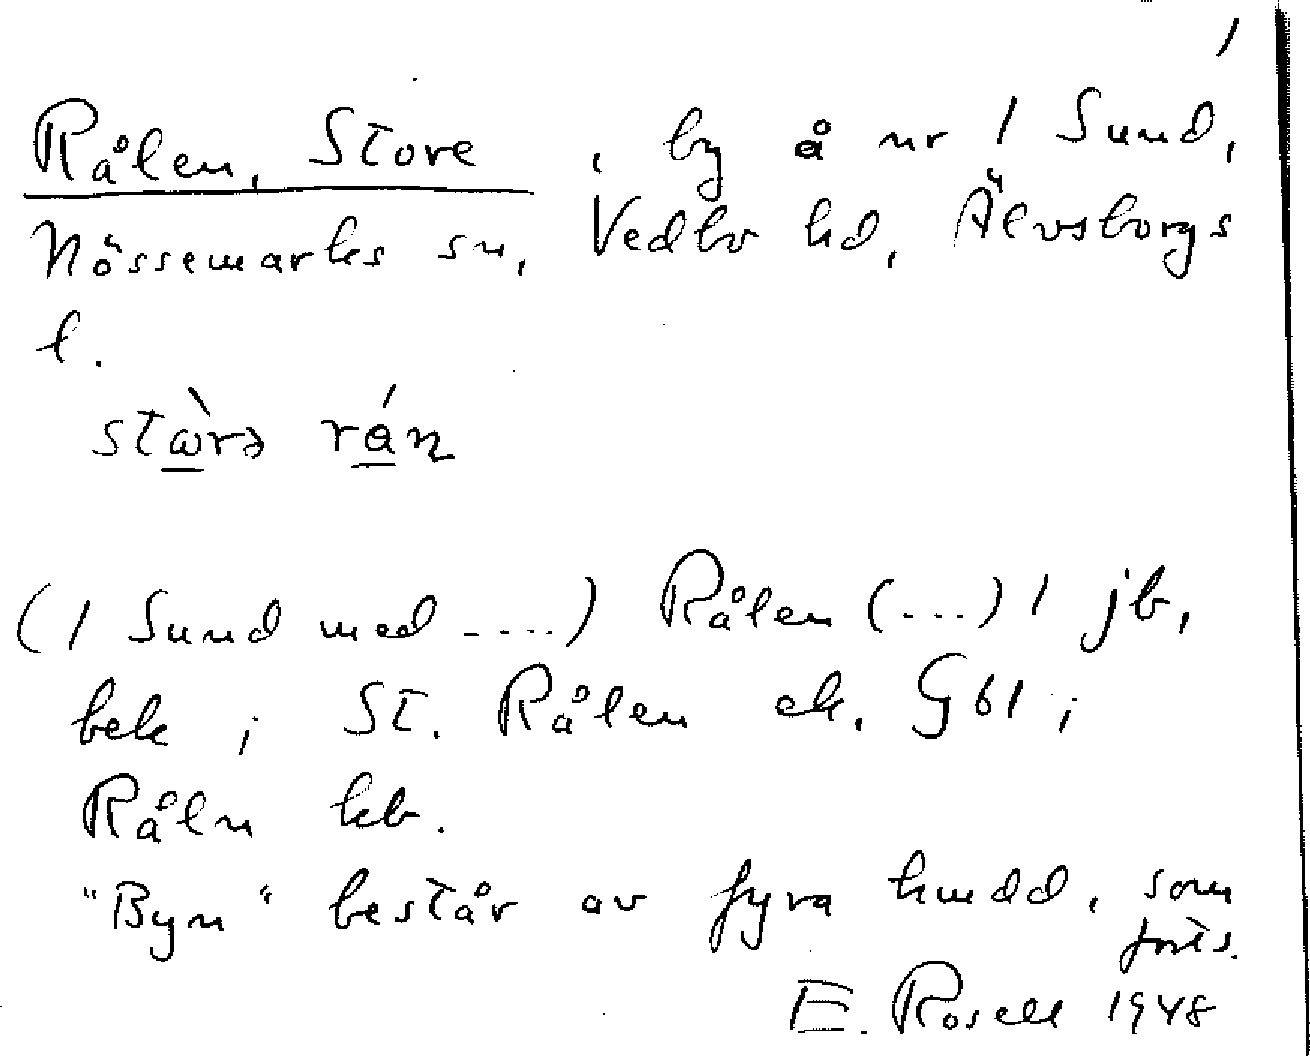 1
Rålen, Store, by å nr 1 Sund,
Nössemarks sn, Vedbo hd, Älvsborgs
l.
stɷ̀rə rán
(1 Sund med ....) Rålen (...) 1 jb,
bek i St. Rålen ek. Gbl;
Råln kb.
"Byn" består av fyra hmdd, som
forts.
E. Rosell 1948